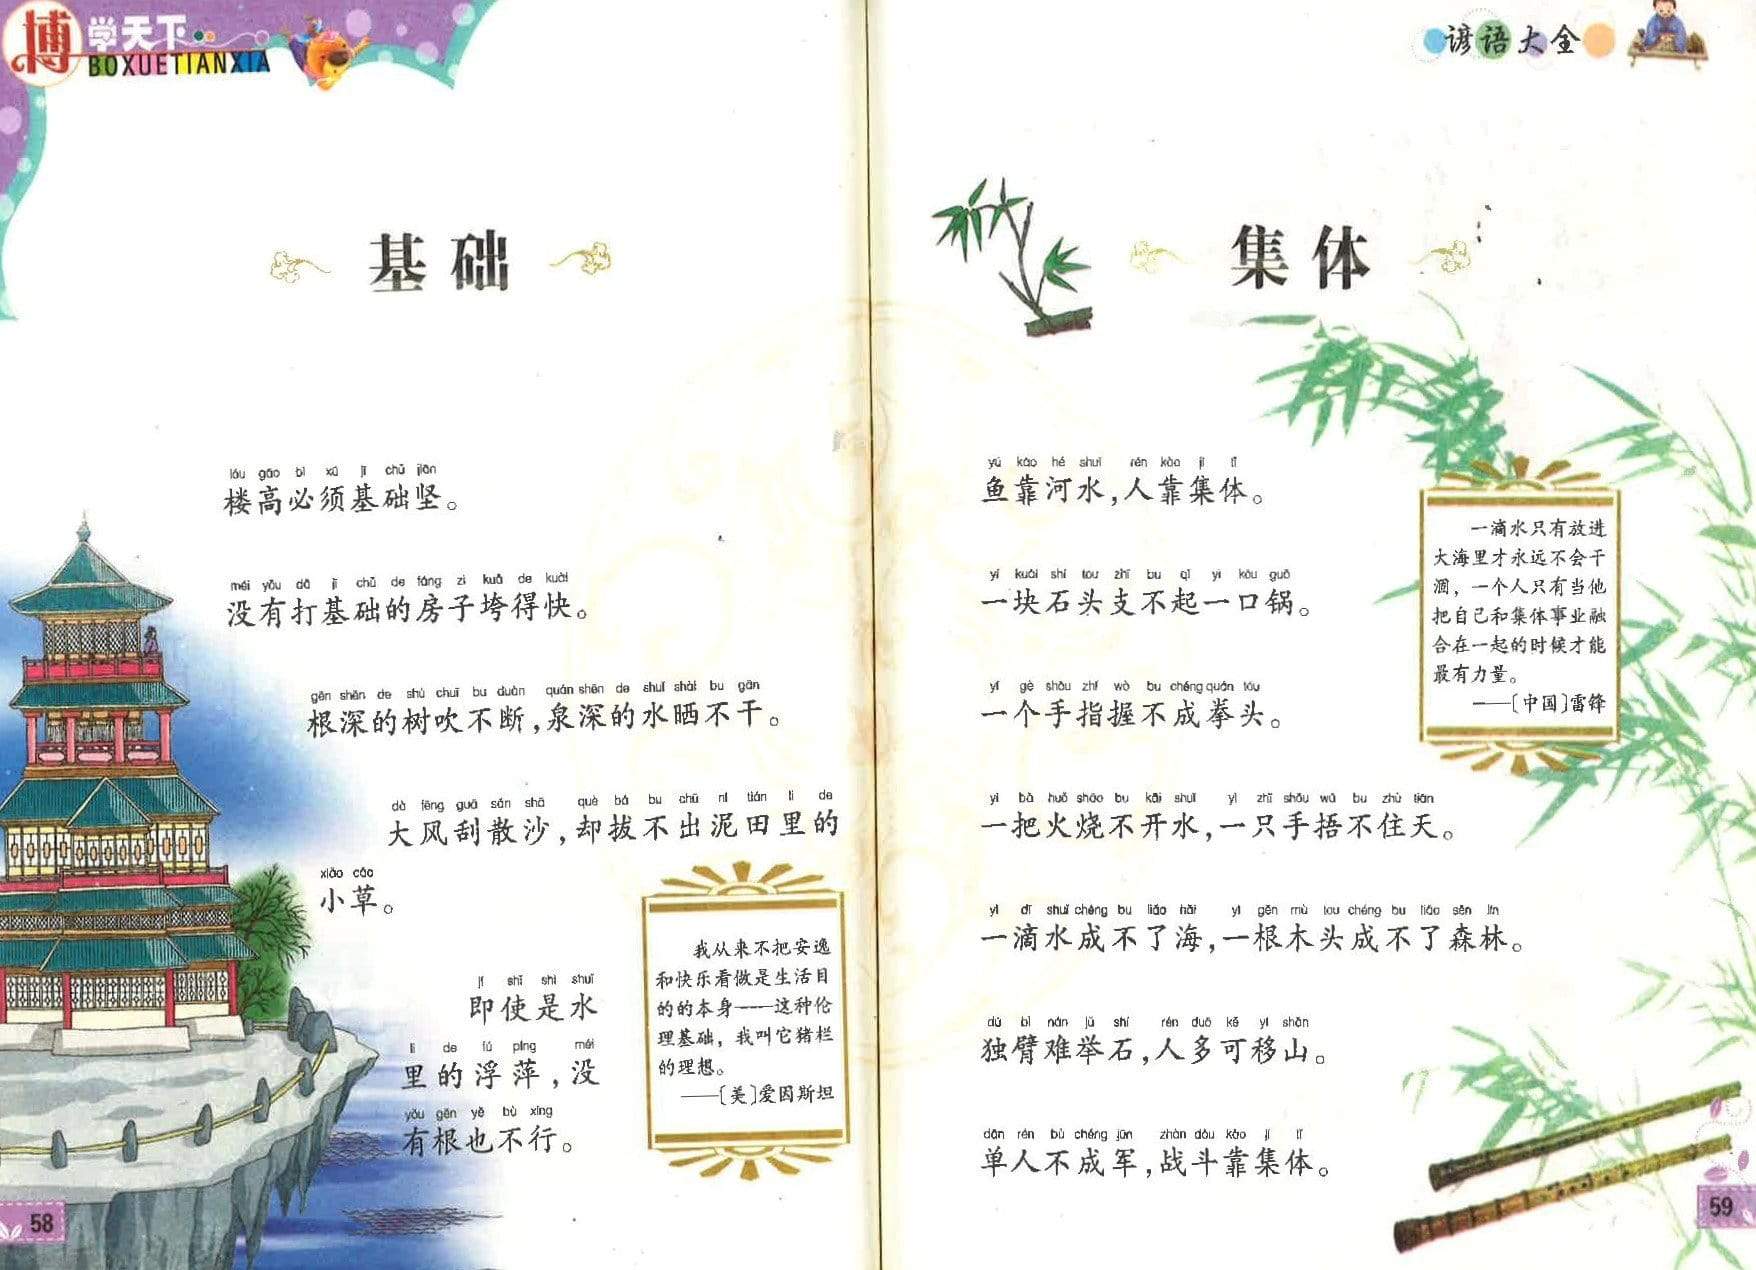 博学天下
BOXUETIANXIA
基础
lóu gāo bì xū jī chǔ jiān
楼高必须基础坚。
méi yǒu dǎ jī chǔ de fáng zi kuǎ de kuài
没有打基础的房子垮得快。
gēn shēn de shù chuī bu duàn quán shēn de shuǐ shài bu gān
根深的树吹不断,泉深的水晒不干。
dà fēng guā sǎn shā què bá bu chū ní tián li de
大风刮散沙,却拔不出泥田里的
xiǎo cǎo
小草。
jí shǐ shì shuǐ
即使是水
li de fú píng méi
里的浮萍,没
yǒu gēn yě bù xíng
有根也不行。
我从来不把安逸
和快乐看做是生活目
的的本身——这种伦
理基础，我叫它猪栏
的理想。
——〔美〕爱因斯坦
58
谚语大全
集体
yú kào hé shuǐ rén kào jí tǐ
鱼靠河水,人靠集体。
yí kuài shí tou zhī bu qǐ yì kǒu guō
一块石头支不起一口锅。
yí gè shǒu zhǐ wò bu chéng quán tóu
一个手指握不成拳头。
yì bǎ huǒ shāo bu kāi shuǐ yì zhī shǒu wǔ bu zhù tiān
一把火烧不开水,一只手捂不住天。
yì dī shuǐ chéng bu liǎo hǎi yì gēn mù tou chéng bu liǎo sēn lín
一滴水成不了海,一根木头成不了森林。
dú bì nán jǔ shí rén duō kě yí shān
独臂难举石,人多可移山。
dān rén bù chéng jūn zhàn dòu kào jí tǐ
单人不成军,战斗靠集体。
一滴水只有放进
大海里才永远不会干
涸，一个人只有当他
把自己和集体事业融
合在一起的时候才能
最有力量。
——〔中国〕雷锋
59